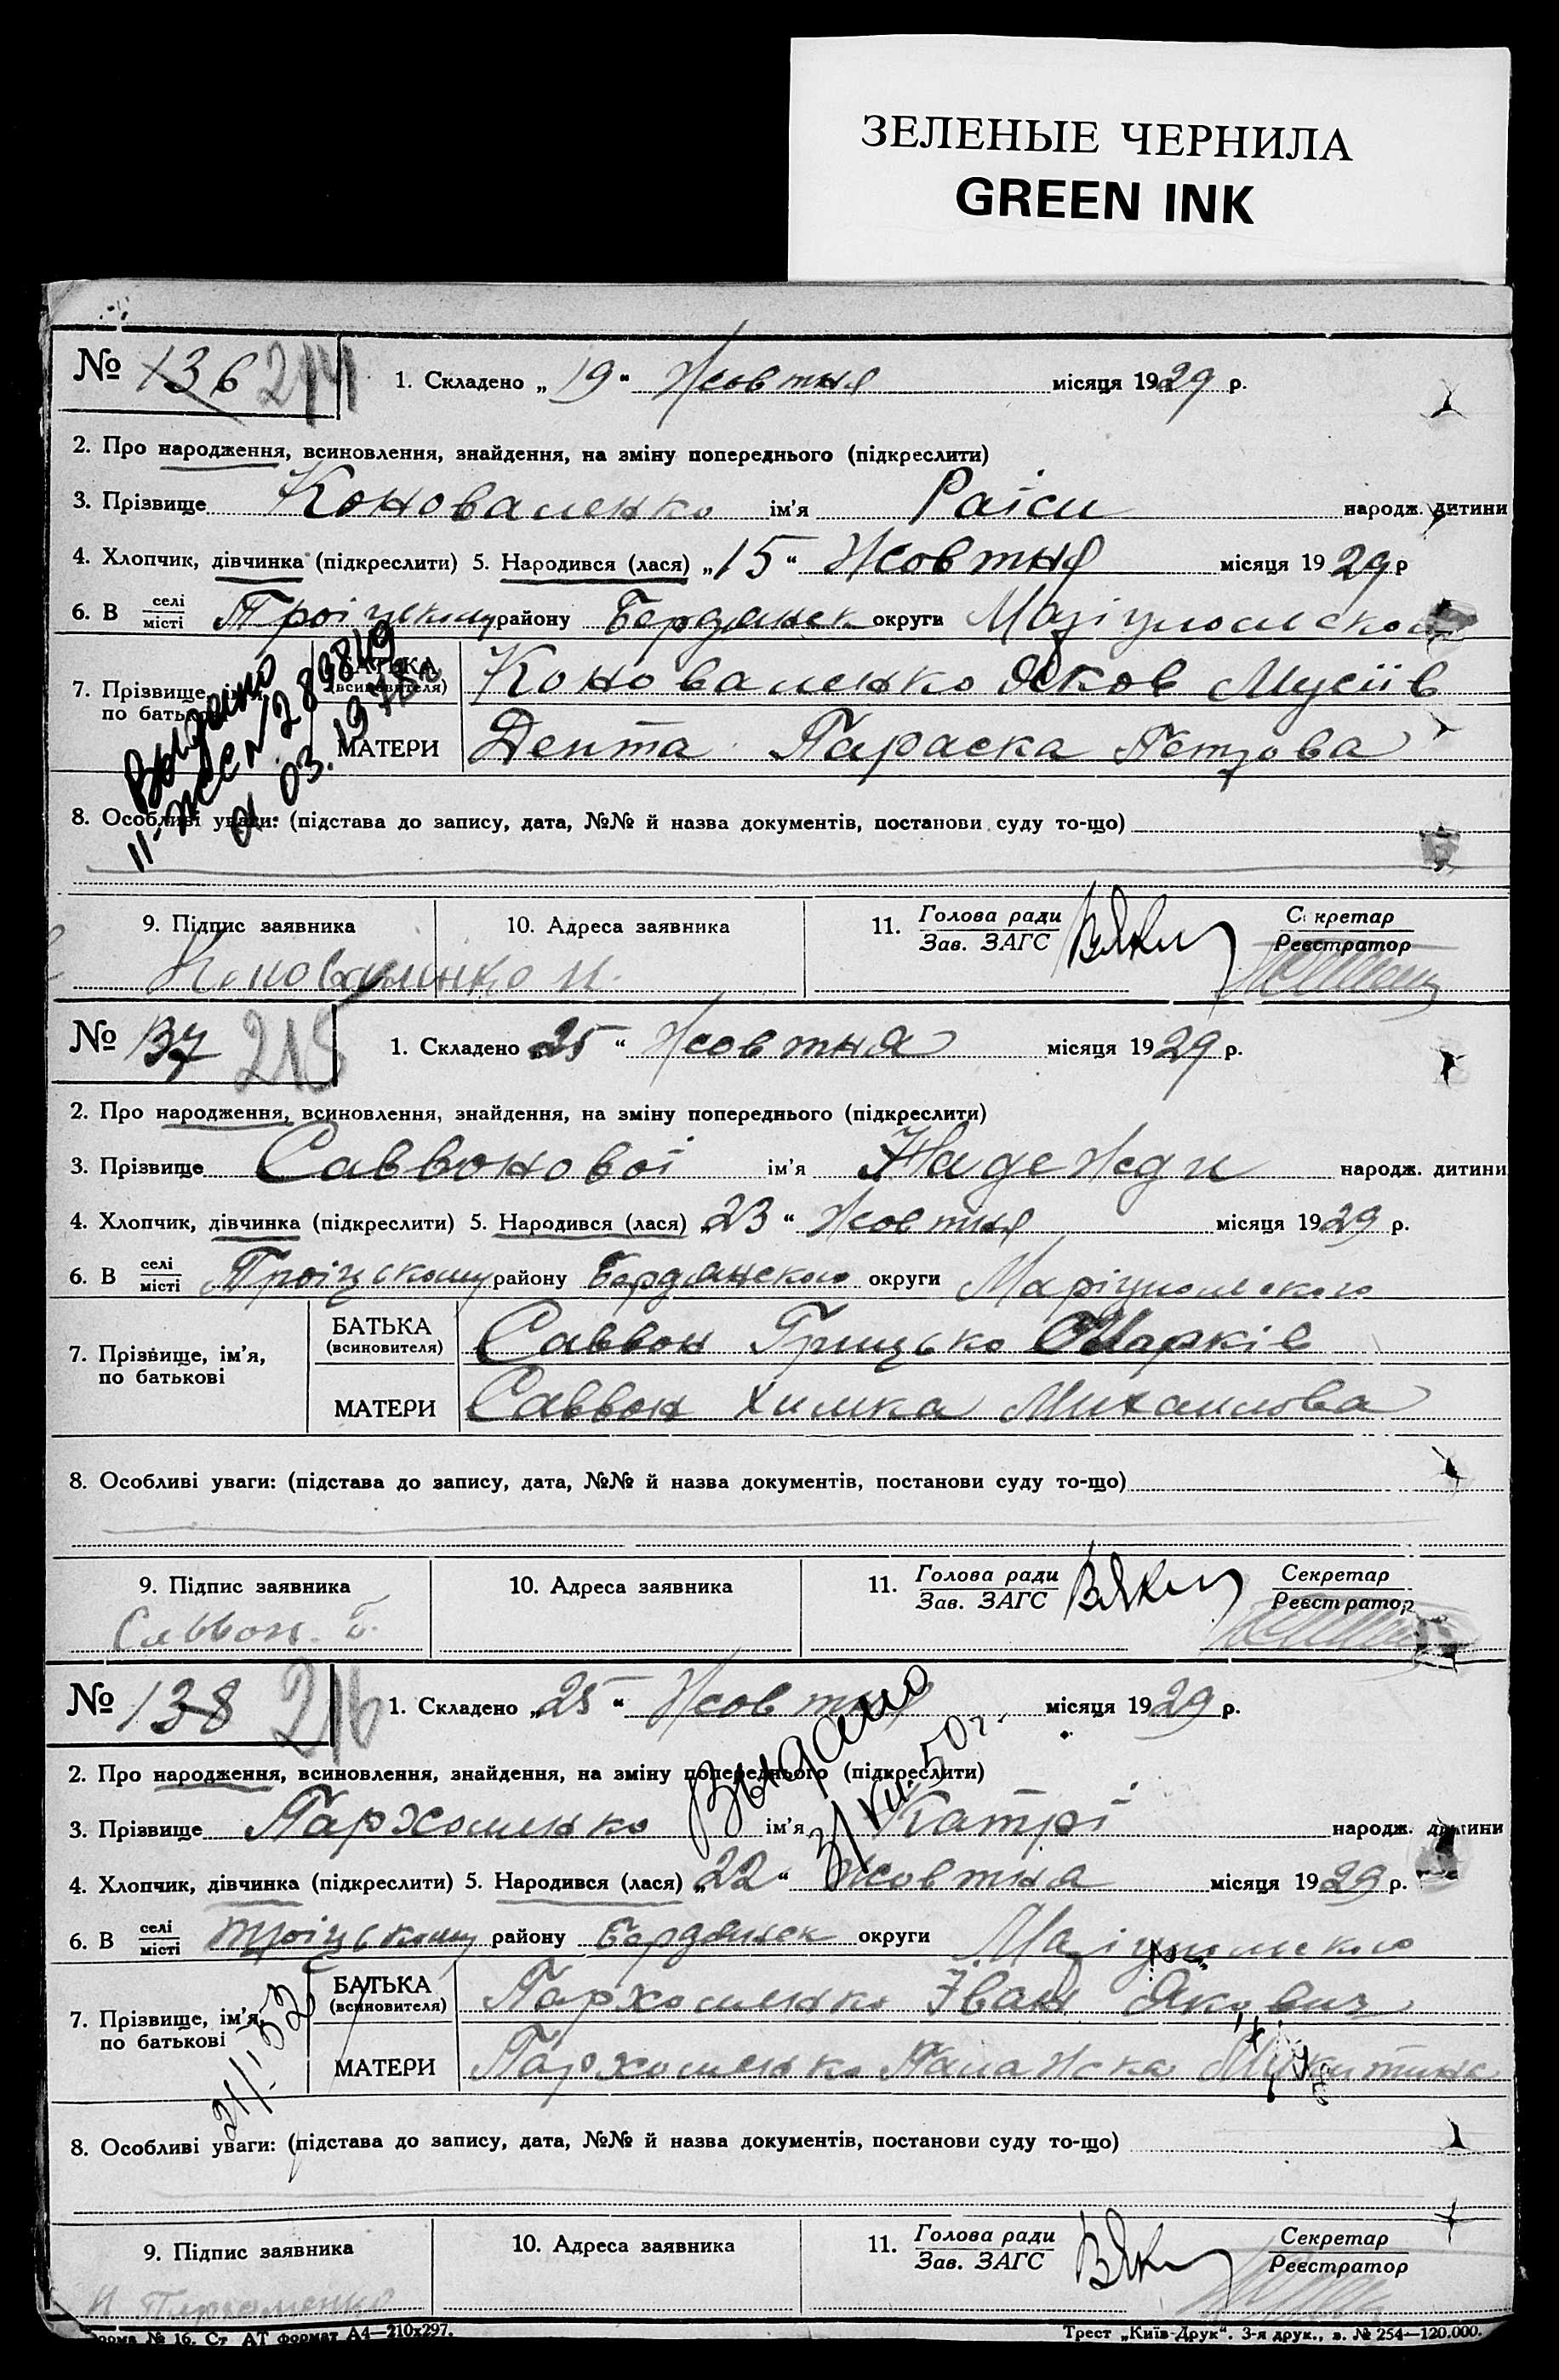 ЗЕЛЕНЫЕ ЧЕРНИЛА
GREEN INK
№ 136 214 1. Складено „19“ Жовтня місяця 1929 р.
2. Про народження, всиновлення, знайдення, на зміну попереднього (підкреслити)
3. Прізвище Коноваленко ім'я Раіси народж. дитини
4. Хлопчик, дівчинка (підкреслити) 5. Народився (лася) „15“ Жовтня місяця 1929 р
6. В селі місті Троіцкому району Бердянск округи Маріупольского
7. Прізвище, ім'я, по батькові
БАТЬКА (всиновителя) Коноваленко Яков Мусіів
МАТЕРИ Дента Параска Петрова
Выдано
II-ЖС № 289849
03. 1978г
8. Особливі уваги: (підстава до запису, дата, №№ й назва документів, постанови суду то-що)
9. Підпис заявника 10. Адреса заявника 11. Голова ради Зав. ЗАГС Секретар Реєстратор
Коноваленко
№ 137 215 1. Складено 25“ Жовтня місяця 1929 р.
2. Про народження, всиновлення, знайдення, на зміну попереднього (підкреслити)
3. Прізвище Саввоновоі ім'я Надежди народж. дитини
4. Хлопчик, дівчинка (підкреслити) 5. Народився (лася) „23“ Жовтня місяця 1929 р.
6. В селі місті Троіцкому району Бердянского округи Маріупольского
7. Прізвище, ім'я, по батькові
БАТЬКА (всиновителя) Саввон Грицько Марків
МАТЕРИ Саввон Химка Михаилова
8. Особливі уваги: (підстава до запису, дата, №№ й назва документів, постанови суду то-що)
9. Підпис заявника 10. Адреса заявника 11. Голова ради Зав. ЗАГС Секретар Реєстратор
Саввон. Г.
№ 138 216 1. Складено „25“ Жовтня місяця 1929 р.
2. Про народження, всиновлення, знайдення, на зміну попереднього (підкреслити)
3. Прізвище Пархоменко ім'я Катрі народж. дитини
Выдано
31/VII. 50 г.
4. Хлопчик, дівчинка (підкреслити) 5. Народився (лася) „22“ Жовтня місяця 1929 р.
6. В селі місті Троіцькому району Бердянск округи Маріупольского
7. Прізвище, ім'я, по батькові
БАТЬКА (всиновителя) Пархоменко Іван Якович
МАТЕРИ Пархоменко Палажка Микитина
8. Особливі уваги: (підстава до запису, дата, №№ й назва документів, постанови суду то-що)
9. Підпис заявника 10. Адреса заявника 11. Голова ради Зав. ЗАГС Секретар Реєстратор
И Пархоменко
Форма № 16. Ст АТ формат А4—210х297. Трест „Київ-Друк“. 3-я друк., з. № 254—120.000.